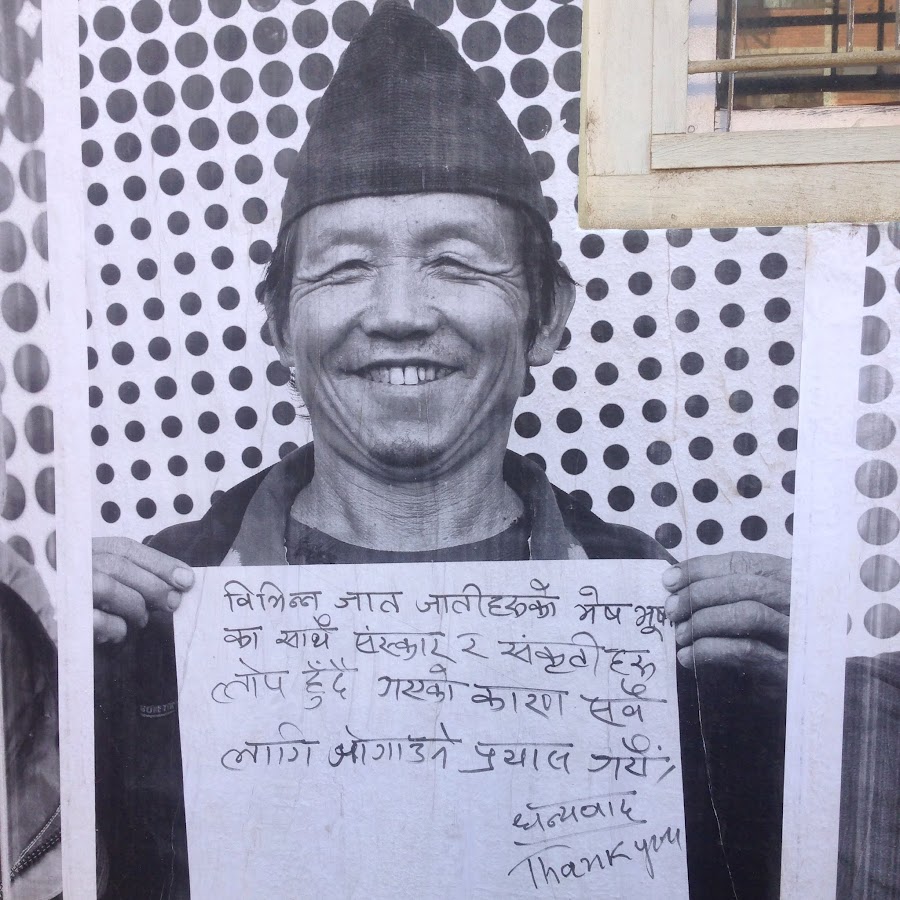 विभिन्न जात जातीहरूको भेष भूष
का साथै संस्कार र संकृतीहरू
लोप हुँदै गएको कारण सवै
लागि जोगाउने प्रयास गरौं,
धन्यवाद
Thank you